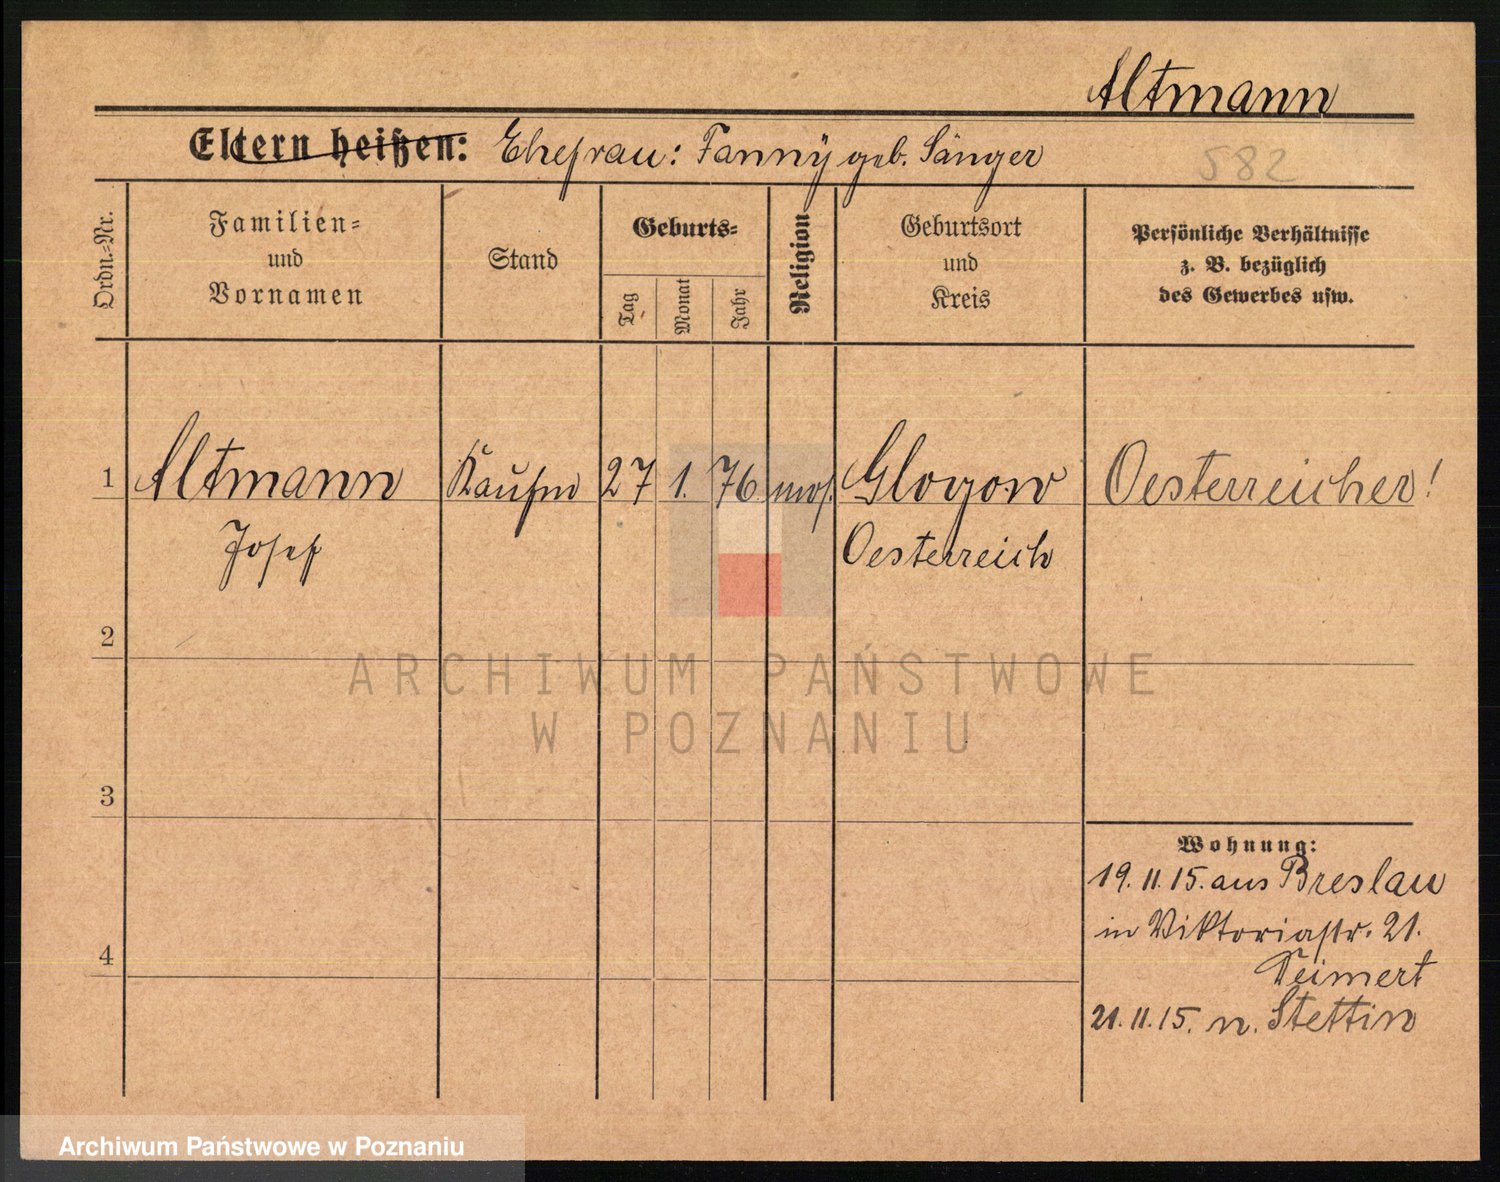 Altmann
Eltern heißen: Ehefrau: Fanny geb. Sänger
582
Ordn.-Nr.
Familien-
und
Vornamen
Stand
Geburts-
Tag
Monat
Jahr
Religion
Geburtsort
und
Kreis
Persönliche Verhältnisse
z. B. bezüglich
des Gewerbes usw.
1 Altmann Kaufm 27 1. 76 mos. Glogow Oesterreicher!
Josef Oesterreich
2
ARCHIWUM PAŃSTWOWE
W POZNANIU
3
Wohnung:
19. 11. 15. aus Breslau
in Viktoriastr. 21.
4
21. 11. 15. n. Stettin
Archiwum Państwowe w Poznaniu